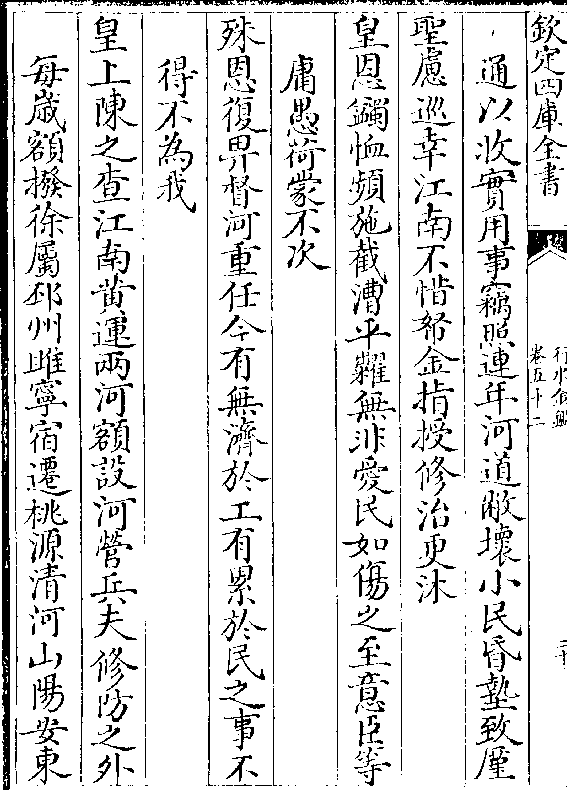 欽定四庫全書
行水金鑑
卷五十二
通以收實用事竊照連年河道敝壞小民昏墊致厪
聖慮巡幸江南不惜帑金指授修治更沐
皇恩蠲恤頻施截漕平糶無非愛民如傷之至意臣等
庸愚荷蒙不次
殊恩復畀督河重任今有無濟於工有累於民之事不
得不為我
皇上陳之查江南黃運兩河額設河營兵夫修防之外
每歲額撥徐屬邳州睢寧宿遷桃源清河山陽安東